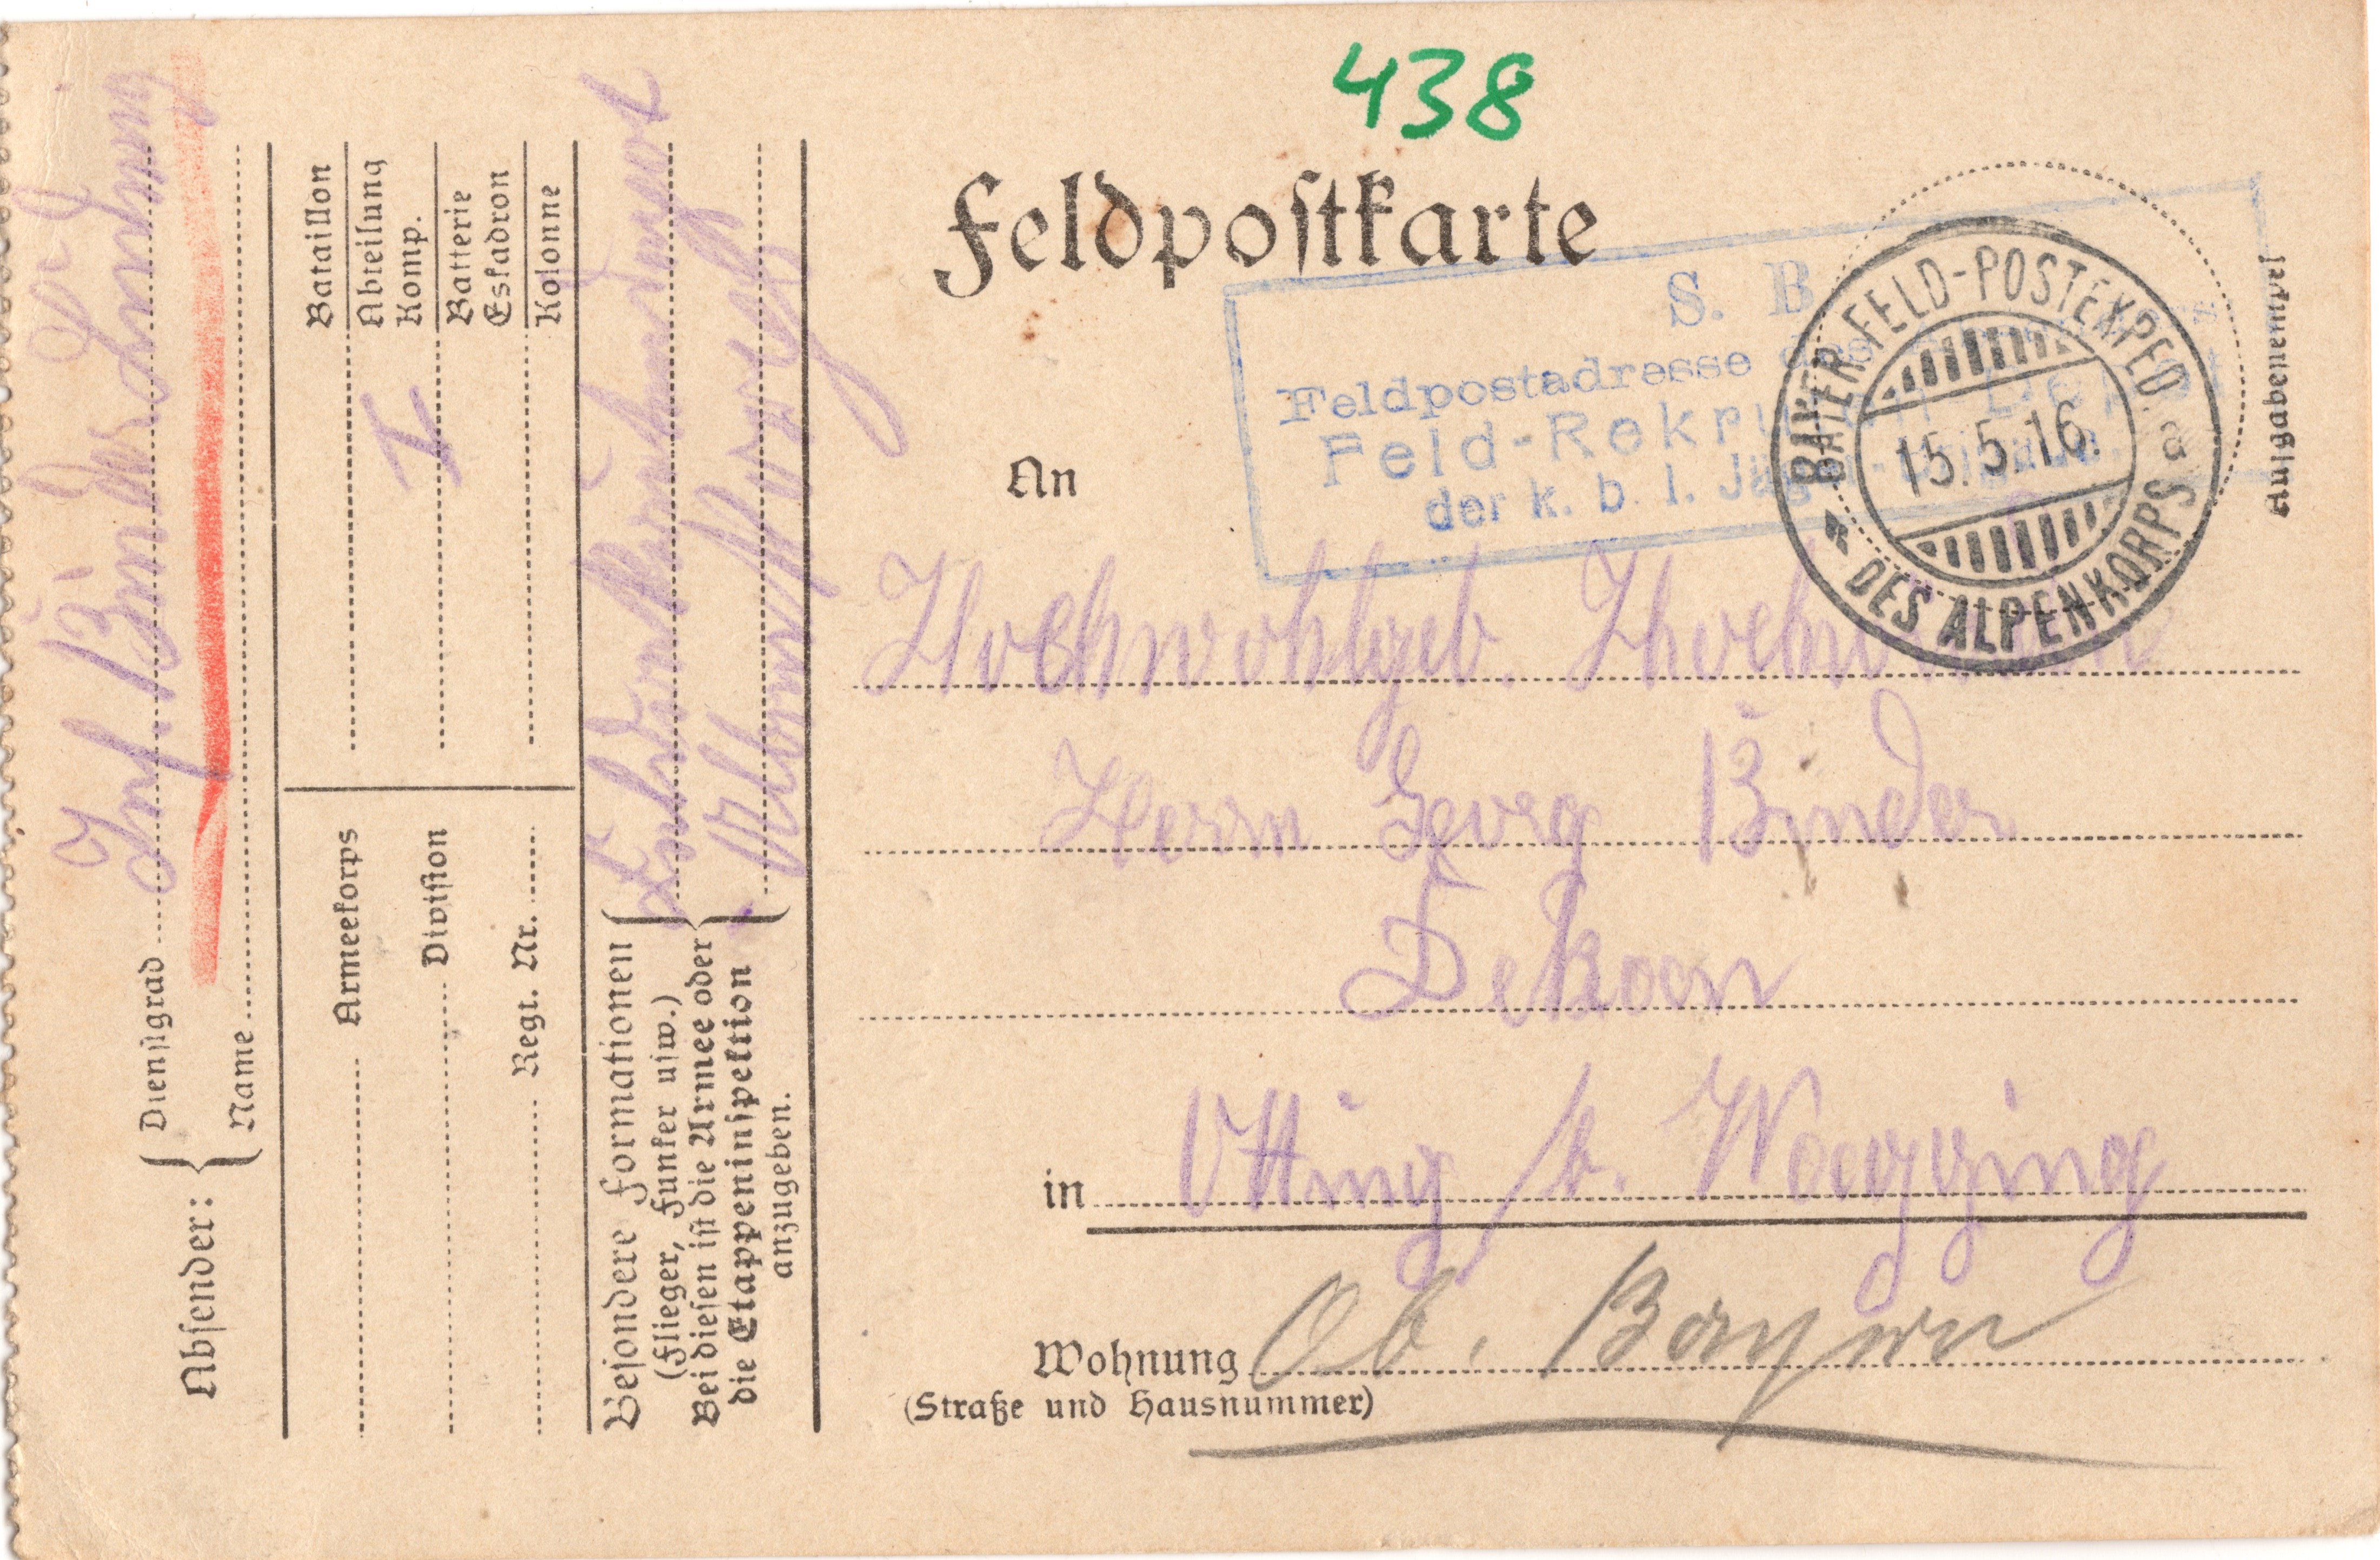 438
Feldpostkarte
S. B.
Feldpostadresse des
Feld-Rekruten Depot
der k. b. 1. Jäger-Brigade.
BAYER. FELD-POSTEXPED.
15.5.16.
a
DES ALPENKORPS
Aufgabestempel
An
Hochwohlgeb. Hochw.
Herrn Georg Binder
Dekan
in Otting b. Waging
Wohnung Ob. Bayern
(Straße und Hausnummer)
Absender:
Dienstgrad Inf. Binder Ludwig
Name
Armeekorps
Division
Regt. Nr.
Bataillon
Abteilung
Komp. I
Batterie
Eskadron
Kolonne
Besondere Formationen
(Flieger, Funker usw.)
Bei diesen ist die Armee oder
die Etappeninspektion
anzugeben.
Feldrekrutendepot